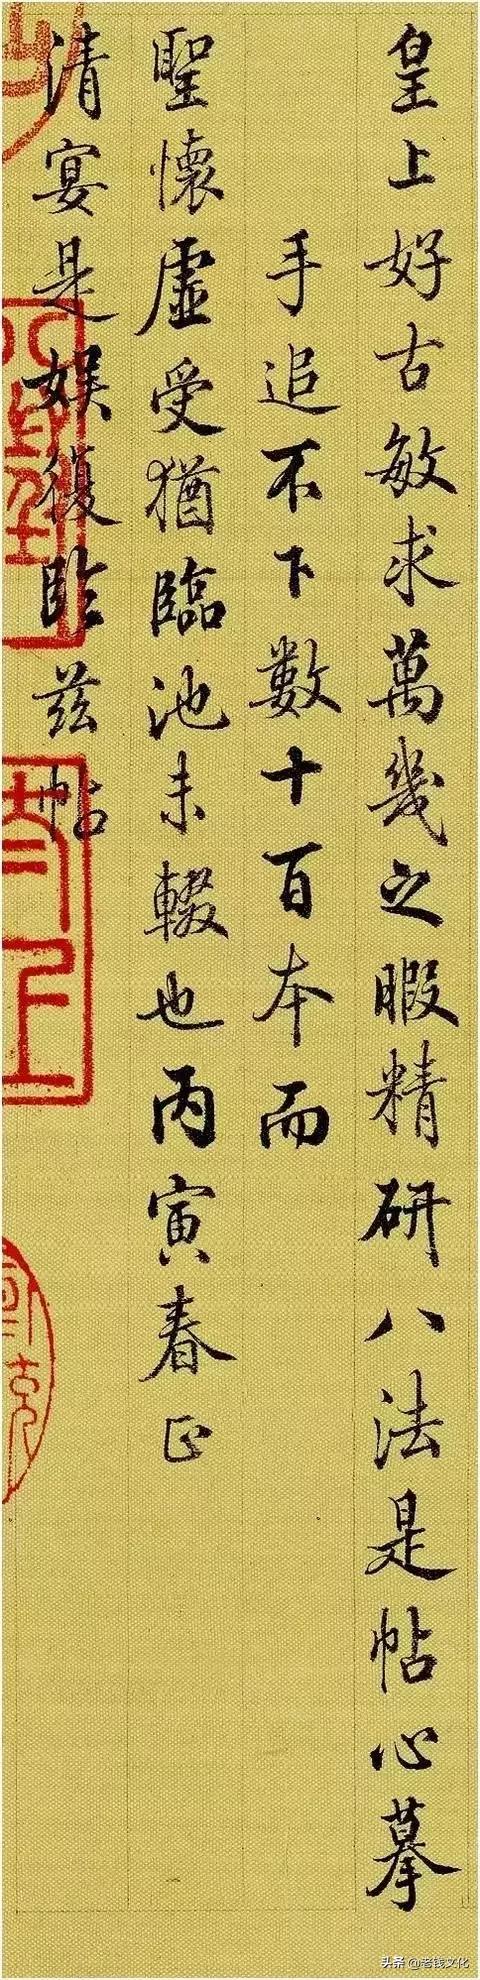 皇上好古敏求萬幾之暇精研八法是帖心摹
手追不下數十百本而
聖懷虛受猶臨池未輟也丙寅春正
清宴是娛復臨茲帖
头条 @老钱文化